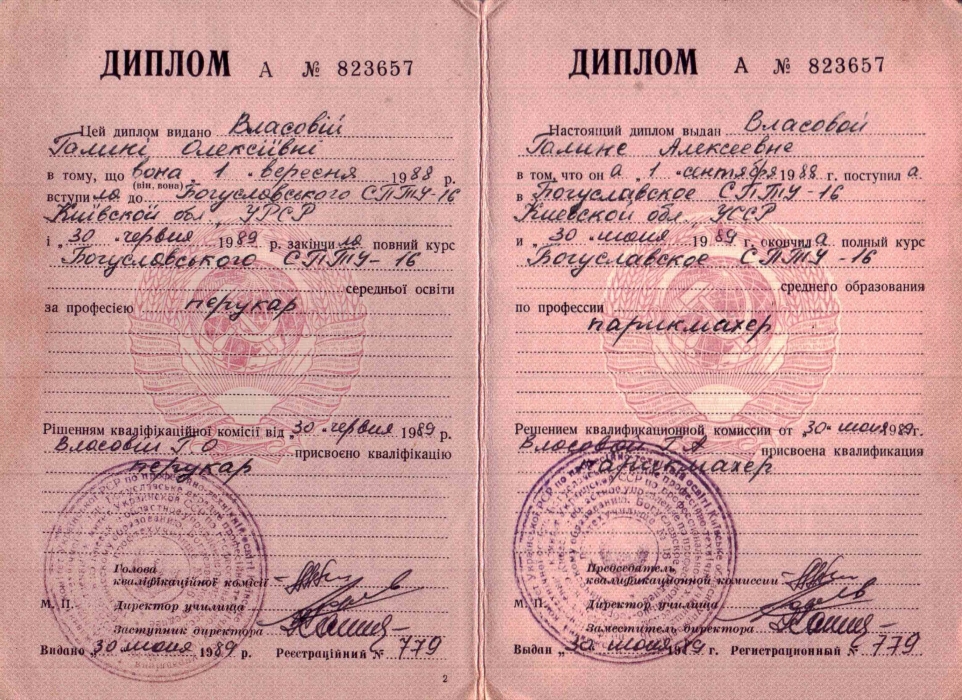 ДИПЛОМ А № 823657
Цей диплом видано Власовій
Галині Олексіївні
в тому, що вона „ 1 „ вересня 1988 р.
(він, вона)
вступила до Богуславського СПТУ-16
Київской обл УРСР
і „ 30 „ червня 1989 р. закінчила повний курс
Богуславського СПТУ-16
середньої освіти
за професією перукар
Рішенням кваліфікаційної комісії від „30„ червня 1989 р.
Власовій Г.О присвоєно кваліфікацію
перукар
Голова
кваліфікаційної комісії
М. П. Директор училища
Заступник директора
Видано 30 июня 1989 р. Реєстраційний № 779
2
ДИПЛОМ А № 823657
Настоящий диплом выдан Власовой
Галине Алексеевне
в том, что он а „ 1 „ сентября 1988 г. поступил а
в Богуславское СПТУ-16
Киевской обл УССР
и „ 30 „ июня 1989 г. окончил а полный курс
Богуславское СПТУ-16
среднего образования
по профессии
парикмахер
Решением квалификационной комиссии от „30„ июня 1989г.
Власовой Г.А присвоена квалификация
парикмахер
Председатель
квалификационной комиссии
М. П. Директор училища
Заместитель директора
Выдан „ 30 июня 1989 г. Регистрационный № 779